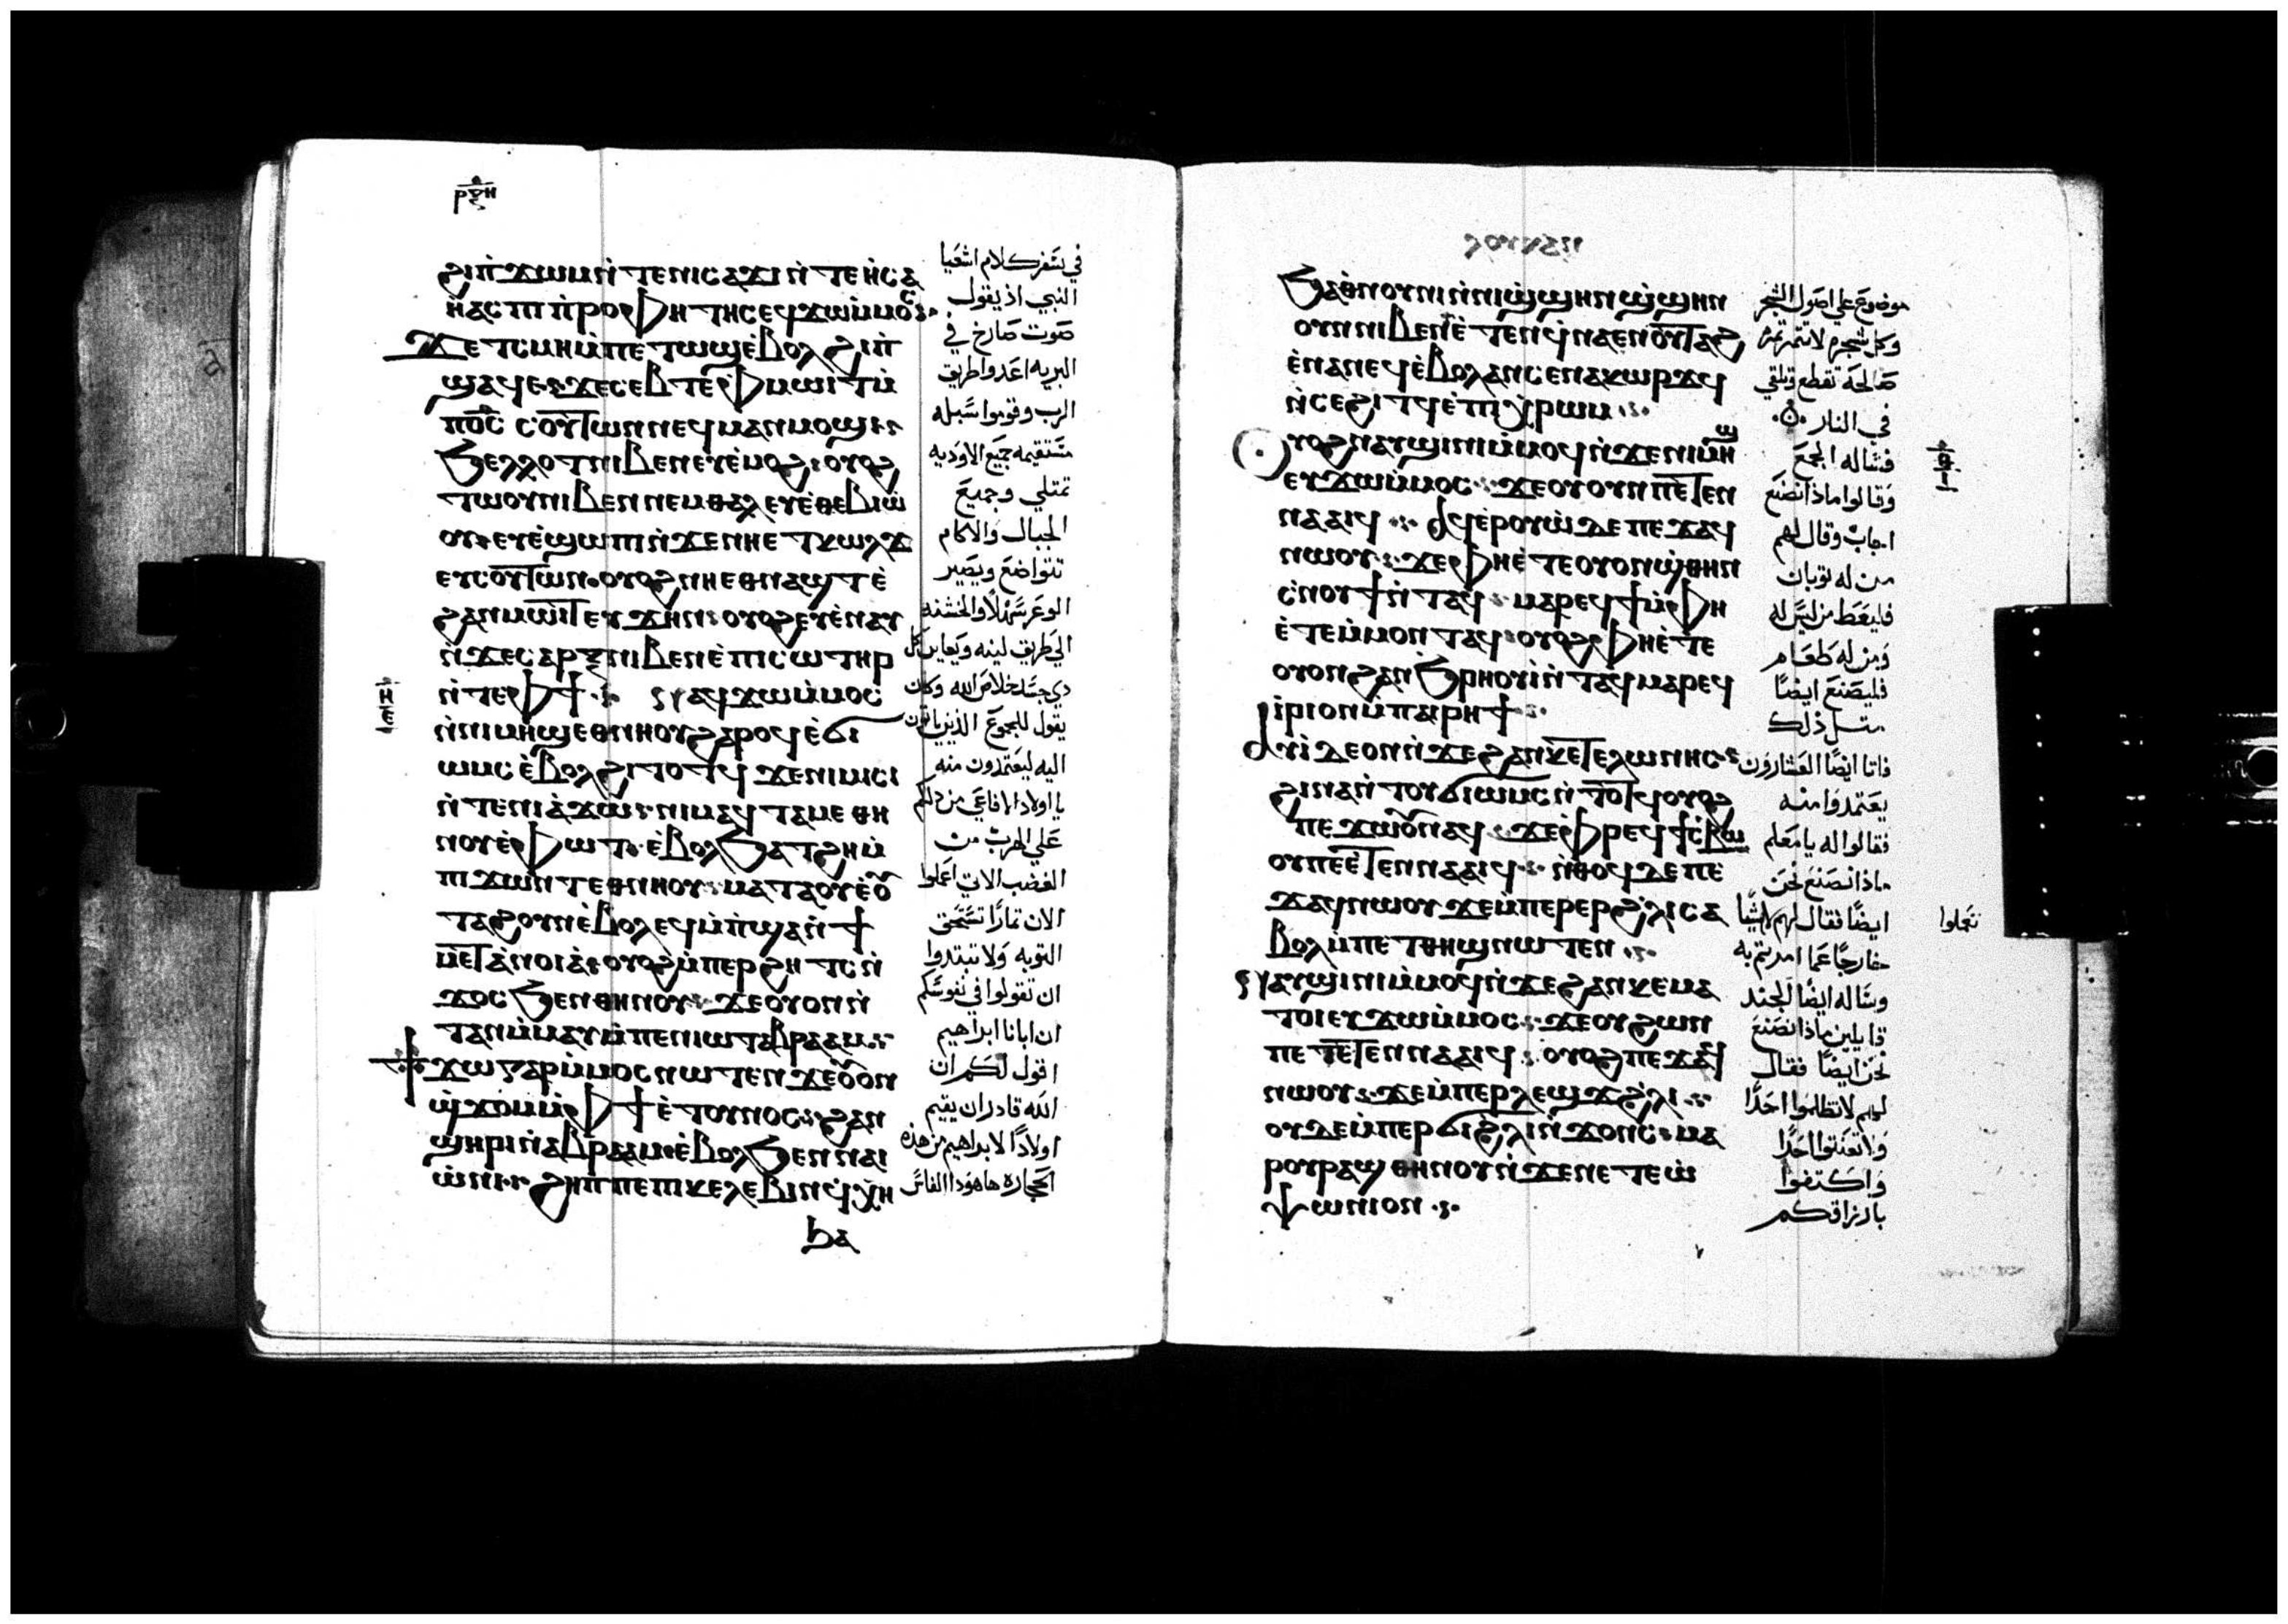 ⲣⲝⲏ
ϩⲓⲡϫⲱⲙ ⲛ̀ⲧⲉ ⲛⲓⲥⲁϫⲓ ⲛ̀ⲧⲉ ⲏⲥⲁ
ⲏ̀ⲁⲥ ⲡⲓⲡ̀ⲣⲟⲫⲏⲧⲏⲥ ⲉϥϫⲱⲙ̀ⲙⲟⲥ
ϫⲉ ⲧⲥⲙⲏ ⲙ̀ⲡⲉⲧⲱϣ ⲉ̀ⲃⲟⲗ ϩⲓⲡ̀
ϣⲁϥⲉ ϫⲉ ⲥⲉⲃⲧⲉ ⲫ̀ⲙⲱⲓⲧ ⲙ̀
ⲡⲟ̅ⲥ̅ ⲥⲟⲩⲧⲱⲛ ⲛⲉϥⲙⲁⲛⲙⲟϣⲓ
ϧⲉⲗⲗⲟⲧ ⲛⲓⲃⲉⲛ ⲉⲩⲉ̀ⲙⲟϩ ⲟⲩⲟϩ
ⲧⲱⲟⲩ ⲛⲓⲃⲉⲛ ⲛⲉⲙ ⲑⲁⲗ ⲉⲩⲉ̀ⲑⲉⲃⲓⲱ̀
ⲟⲩ ⲉⲩⲉ̀ϣⲱⲡⲓ ⲛ̀ϫⲉ ⲛⲏⲉⲧⲕⲱⲗϫ
ⲉⲩⲥⲟⲩⲧⲱⲛ ⲟⲩⲟϩ ⲛⲏⲉⲑⲛⲁϣⲧ ⲉ̀
ϩⲁⲛⲙⲱⲓⲧ ⲉⲩϫⲏⲛ ⲟⲩⲟϩ ⲉⲩⲉ̀ⲛⲁⲩ
ⲛ̀ϫⲉ ⲥⲁⲣⲝ ⲛⲓⲃⲉⲛ ⲉ̀ⲡⲓⲥⲱⲧⲏⲣ
ⲛ̀ⲧⲉ ⲫϯ ⲛⲁϥϫⲱⲙ̀ⲙⲟⲥ
ⲛ̀ⲛⲓⲙⲏϣ ⲉⲑⲛⲏⲟⲩ ϩⲁⲣⲟϥ ⲉ̀ϭⲓ
ⲱⲙⲥ ⲉ̀ⲃⲟⲗ ϩⲓⲧⲟⲧϥ ϫⲉ ⲛⲓⲙⲓⲥⲓ
ⲛ̀ⲧⲉ ⲛⲓⲁ̀ϫⲱ ⲛⲓⲙ ⲁϥⲧⲁⲙⲉ ⲑⲏ
ⲛⲟⲩ ⲉ̀ⲫⲱⲧ ⲉ̀ⲃⲟⲗ ϧⲁⲧϩⲏ ⲙ̀
ⲡⲓϫⲱⲛⲧ ⲉⲑⲛⲏⲟⲩ ⲙⲁⲧⲁⲟⲩⲉ̀ ⲟⲩ
ⲧⲁϩ ⲟⲩⲛ ⲉ̀ⲃⲟⲗ ⲉϥⲙ̀ⲡϣⲁ ⲛ̀ϯ
ⲙⲉⲧⲁⲛⲟⲓⲁ̀ ⲟⲩⲟϩ ⲙ̀ⲡⲉⲣϩⲏⲧⲥ ⲛ̀
ϫⲟⲥ ϧⲉⲛ ⲑⲏⲛⲟⲩ ϫⲉ ⲟⲩⲟⲛ ⲛ̀
ⲧⲁⲛ ⲙ̀ⲙⲁⲩ ⲙ̀ⲡⲉⲛⲓⲱⲧ ⲁⲃⲣⲁⲁⲙ
ϯϫⲱ ⲅⲁⲣ ⲙ̀ⲙⲟⲥ ⲛⲱⲧⲉⲛ ϫⲉ ⲟⲩⲟⲛ
ϣ̀ϫⲟⲙ ⲙ̀ⲫϯ ⲉ̀ⲧⲟⲩⲛⲟⲥ ϩⲁⲛ
ϣⲏⲣⲓ ⲛ̀ⲁⲃⲣⲁⲁⲙ ⲉ̀ⲃⲟⲗ ϧⲉⲛ ⲛⲁⲓ
ⲱ̀ⲛⲓ ϩⲏⲡⲡⲉ ⲡⲓⲕⲉⲗⲉⲃⲓⲛ ϥ̀ⲭⲏ
ϧⲁ
في سفر كلام اشعيا
النبي اذ يقول
صوت صارخ في
البريه اعدوا طريق
الرب وقوموا سبله
مستقيمه جميع الاوديه
تمتلي وجميع
الجبال والاكام
تتواضع ويصير
الوعر سهلا والخشنه
الي طريق لينه ويعاين كل
ذي جسد خلاص الله وكان
يقول للجموع الذين ياتون
اليه ليعتمدون منه
يا اولاد الافاعي من دلكم
علي الهرب من
الغضب الاتي اعملوا
الان ثمارا تستحق
التوبه ولا تبتدوا
ان تقولوا في نفوسكم
ان ابانا ابراهيم
اقول لكم ان
الله قادر ان يقيم
اولادا لابراهيم من هذه
الحجاره ها هوذا الفاس
ϧⲁ ⲑⲛⲟⲩⲛⲓ ⲛ̀ⲛⲓϣ̀ϣⲏⲛ ϣ̀ϣⲏⲛ
ⲟⲩⲛ ⲛⲓⲃⲉⲛ ⲉ̀ⲧⲉⲛϥ̀ⲛⲁⲉⲛ ⲟⲩⲧⲁϩ
ⲉ̀ⲛⲁⲛⲉϥ ⲉ̀ⲃⲟⲗ ⲁⲛ ⲥⲉⲛⲁⲕⲱⲣϫϥ
ⲛ̀ⲥⲉϩⲓⲧϥ ⲉ̀ⲡⲓⲭ̀ⲣⲱⲙ
ⲟⲩⲟϩ ⲛⲁⲩϣⲓⲛⲓ ⲙ̀ⲙⲟϥ ⲛ̀ϫⲉ ⲛⲓⲙⲏϣ
ⲉⲩϫⲱⲙ̀ⲙⲟⲥ ϫⲉ ⲟⲩ ⲟⲩⲛ ⲡⲉⲧⲉⲛ
ⲛⲁⲁⲓϥ ⲁϥⲉⲣⲟⲩⲱ̀ ⲇⲉ ⲡⲉϫⲁϥ
ⲛⲱⲟⲩ ϫⲉ ⲫⲏⲉ̀ⲧⲉ ⲟⲩⲟⲛ ϣ̀ⲑⲏⲛ
ⲥ̀ⲛⲟⲩϯ ⲛ̀ⲧⲁϥ ⲙⲁⲣⲉϥϯ ⲙ̀ⲫⲏ
ⲉ̀ⲧⲉ ⲙ̀ⲙⲟⲛ ⲧⲁϥ ⲟⲩⲟϩ ⲫⲏⲉ̀ⲧⲉ
ⲟⲩⲟⲛ ϩⲁⲛϧ̀ⲣⲏⲟⲩⲓ̀ ⲛ̀ⲧⲁϥ ⲙⲁⲣⲉϥ
ⲓ̀ⲣⲓ ⲟⲛ ⲙ̀ⲡⲁⲓⲣⲏϯ
ⲁⲩⲓ̀ ⲇⲉ ⲟⲛ ⲛ̀ϫⲉ ϩⲁⲛⲕⲉⲧⲉⲗⲱⲛⲏⲥ
ϩⲓⲛⲁ ⲛ̀ⲧⲟⲩϭⲓⲱⲙⲥ ⲛ̀ⲧⲟⲧϥ ⲟⲩⲟϩ
ⲡⲉϫⲱⲟⲩ ⲛⲁϥ ϫⲉ ⲫ̀ⲣⲉϥϯⲥ̀ⲃⲱ
ⲟⲩ ⲡⲉⲉ̀ⲧⲉⲛⲛⲁⲁⲓϥ ⲛ̀ⲑⲟϥ ⲇⲉ ⲡⲉ
ϫⲁϥ ⲛⲱⲟⲩ ϫⲉ ⲙ̀ⲡⲉⲣⲉⲣϩ̀ⲗⲓ ⲥⲁ
ⲃⲟⲗ ⲙ̀ⲡⲉⲧⲑⲏϣ ⲛⲱⲧⲉⲛ
ⲛⲁⲩϣⲓⲛⲓ ⲙ̀ⲙⲟϥ ⲛ̀ϫⲉ ϩⲁⲛⲕⲉⲙⲁ
ⲧⲟⲓ ⲉⲩϫⲱⲙ̀ⲙⲟⲥ ϫⲉ ⲟⲩ ϩⲱⲛ
ⲡⲉⲧⲉⲧⲉⲛⲛⲁⲁⲓϥ ⲟⲩⲟϩ ⲡⲉϫⲁϥ
ⲛⲱⲟⲩ ϫⲉ ⲙ̀ⲡⲉⲣⲗⲉϣⲗϫ ϩ̀ⲗⲓ
ⲟⲩⲇⲉ ⲙ̀ⲡⲉⲣϭⲓ ϩ̀ⲗⲓ ⲛ̀ϫⲟⲛⲥ ⲙⲁ
ⲣⲟⲩⲣⲁϣ ⲑⲏⲛⲟⲩ ⲛ̀ϫⲉ ⲛⲉⲧⲉⲛⲟ̀
ⲯⲱⲛⲓⲟⲛ
موضوع علي اصول الشجر
وكل شجره لا تثمر ثمره
صالحه تقطع وتلقي
في النار
فساله الجمع
وقالوا ماذا نصنع
اجاب وقال لهم
من له ثوبان
فليعط من ليس له
ومن له طعام
فليصنع ايضا
مثل ذلك
فاتا ايضا العشارون
يعتمدوا منه
فقالوا له يا معلم
ماذا نصنع نحن
ايضا فقال لهم لا شيا
تعملوا
خارجا عما امرتم به
وساله ايضا الجند
قايلين ماذا نصنع
نحن ايضا فقال
لهم لا تظلموا احدا
ولا تعنتوا احدا
واكتفوا
بارزاقكم